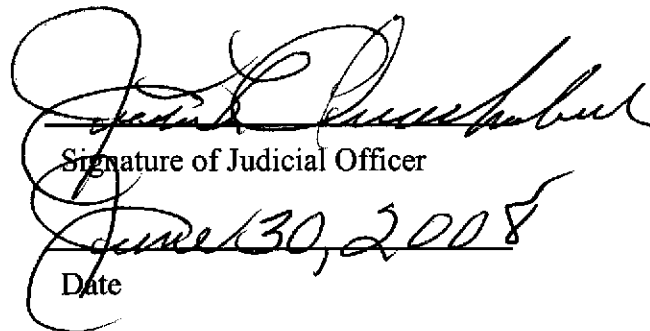 Signature of Judicial Officer
June 30, 2008
Date